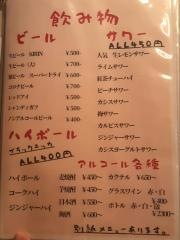 飲み物
ビール
生ビール KIRIN ¥500-
生ビール (大) ¥700-
瓶ビール スーパードライ ¥600-
コロナビール ¥700-
レッドアイ ¥500-
シャンディガフ ¥500-
ノンアルコールビール ¥400-
サワー
ALL450円
人気 生レモンサワー
ライムサワー
紅茶チューハイ
ピーチサワー
カシスサワー
梅サワー
カルピスサワー
ジンジャーサワー
カシスヨーグルトサワー
ハイボール
ブラックニッカ
ALL400円
ハイボール
コークハイ
ジンジャーハイ
アルコール各種
麦焼酎 ¥450~
芋焼酎 ¥450~
日本酒 ¥550~
梅酒 ¥600~
カクテル ¥650~
グラスワイン 赤・白
¥400
ボトル 赤・白・泡
¥2300~
別紙メニューあります。